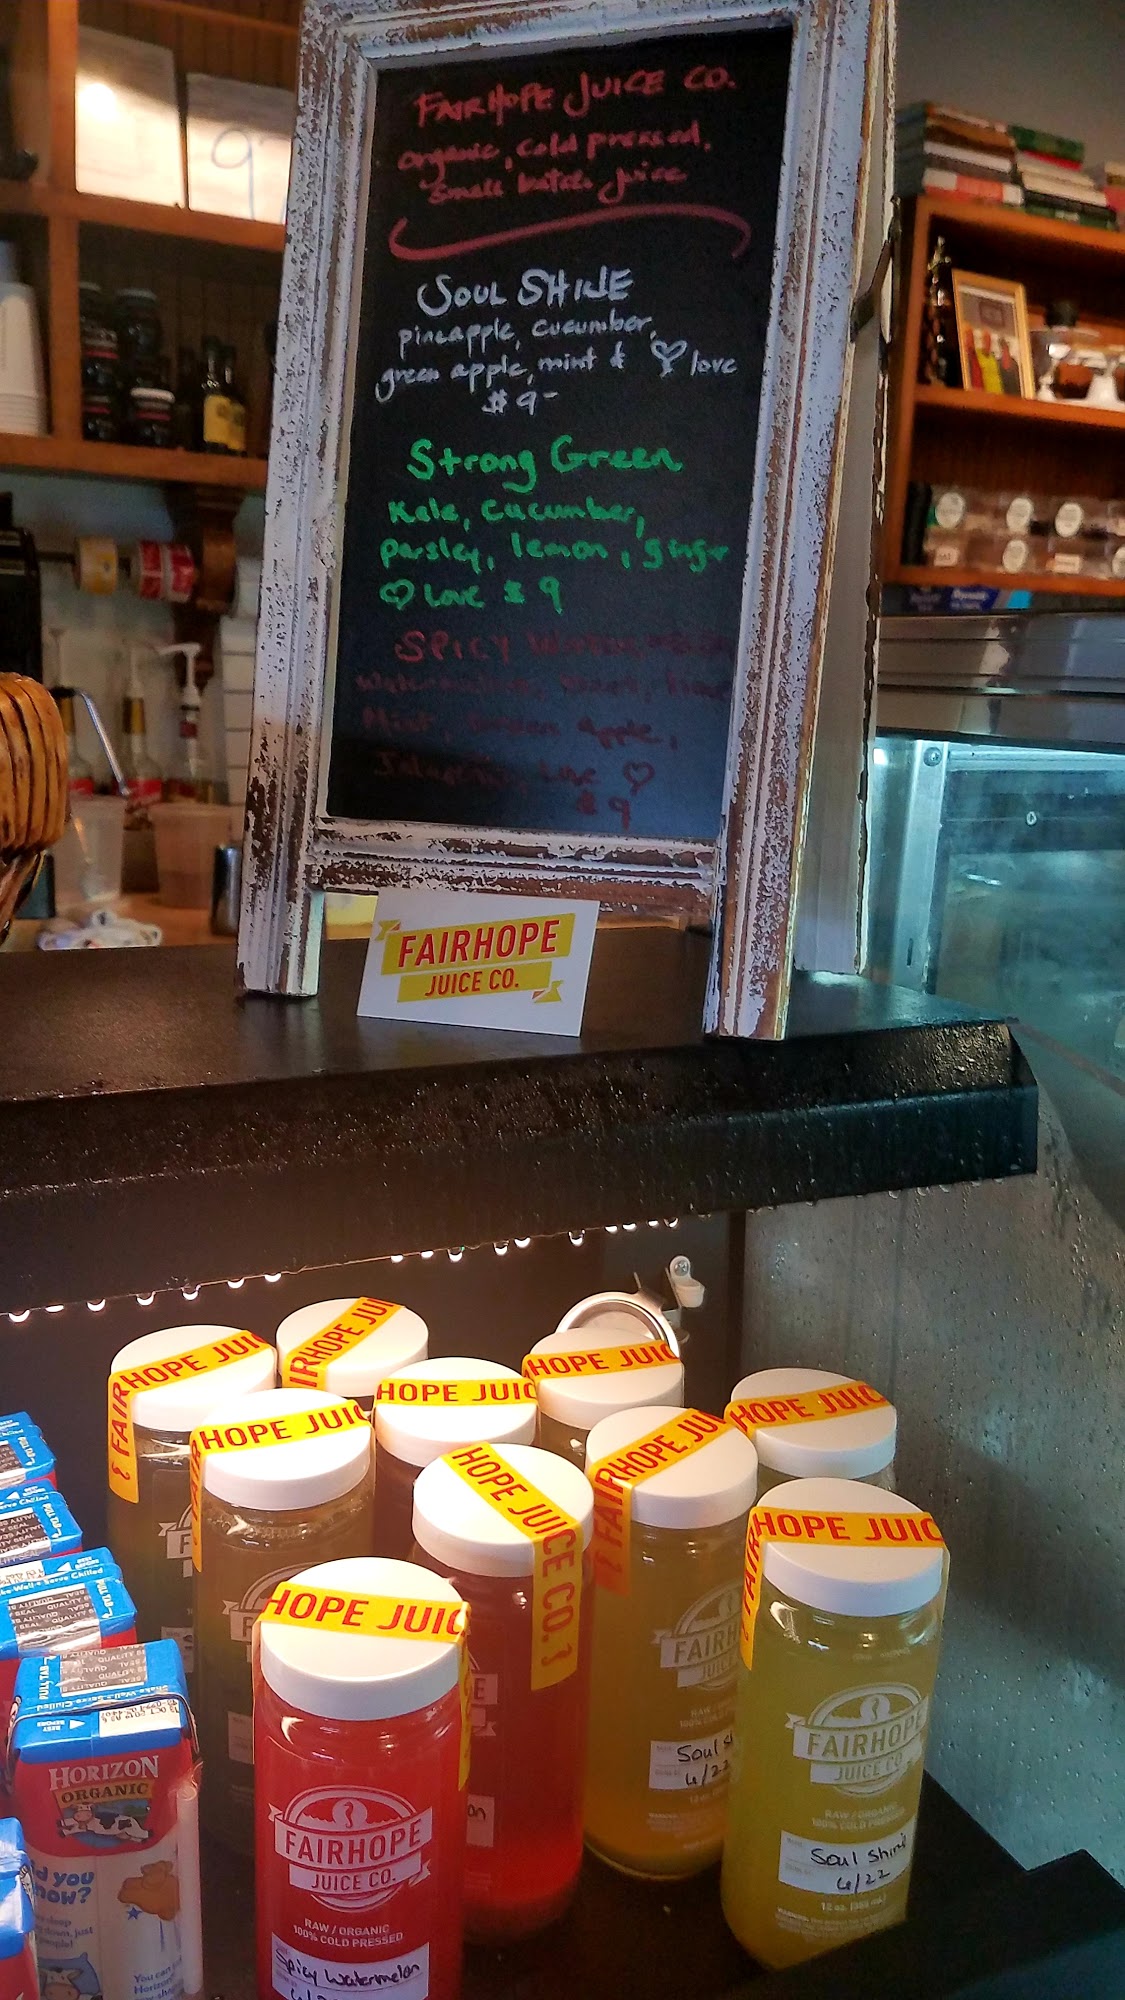 FAIRHOPE JUICE CO.
organic, cold pressed,
small batch juice
SOUL SHINE
pineapple, cucumber,
green apple, mint & love
$9-
Strong Green
Kale, cucumber,
parsley, lemon, ginger
love $9
SPICY
Mint, apple,
Jalapeño, Love
$9
9
FAIRHOPE
JUICE CO.
FAIRHOPE JUI
IRHOPE JUI
HOPE JUIC
HOPE JUIC
HOPE JUIC
HOPE JUIC
FAIRHOPE JU
HOPE JUICE CO.
HOPE JUIC
HOPE JUIC
FAIRHOPE
JUICE CO.
RAW / ORGANIC
100% COLD PRESSED
Spicy Watermelon
FAIRH
JUICE
Soul Sh
6/22
FAIRHOPE
JUICE CO.
RAW / ORGANIC
100% COLD PRESSED
Soul Shine
6/22
12 oz.
Shake Well • Serve Chilled
PULL TAB
HORIZON
ORGANIC
id you
now?
You can
Horizon